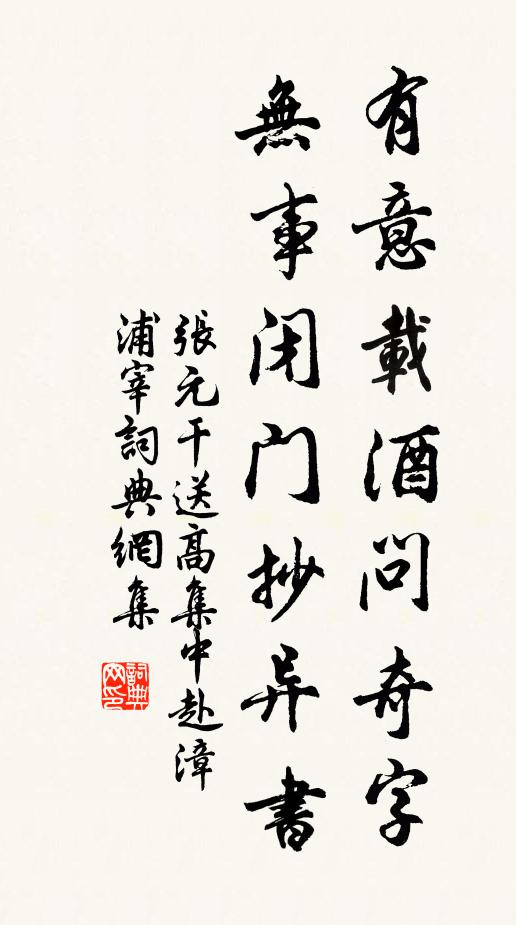 有意載酒問奇字
無事闭门抄异書
張元干送高集中赴漳
浦宰詞典網集
詞典
网印